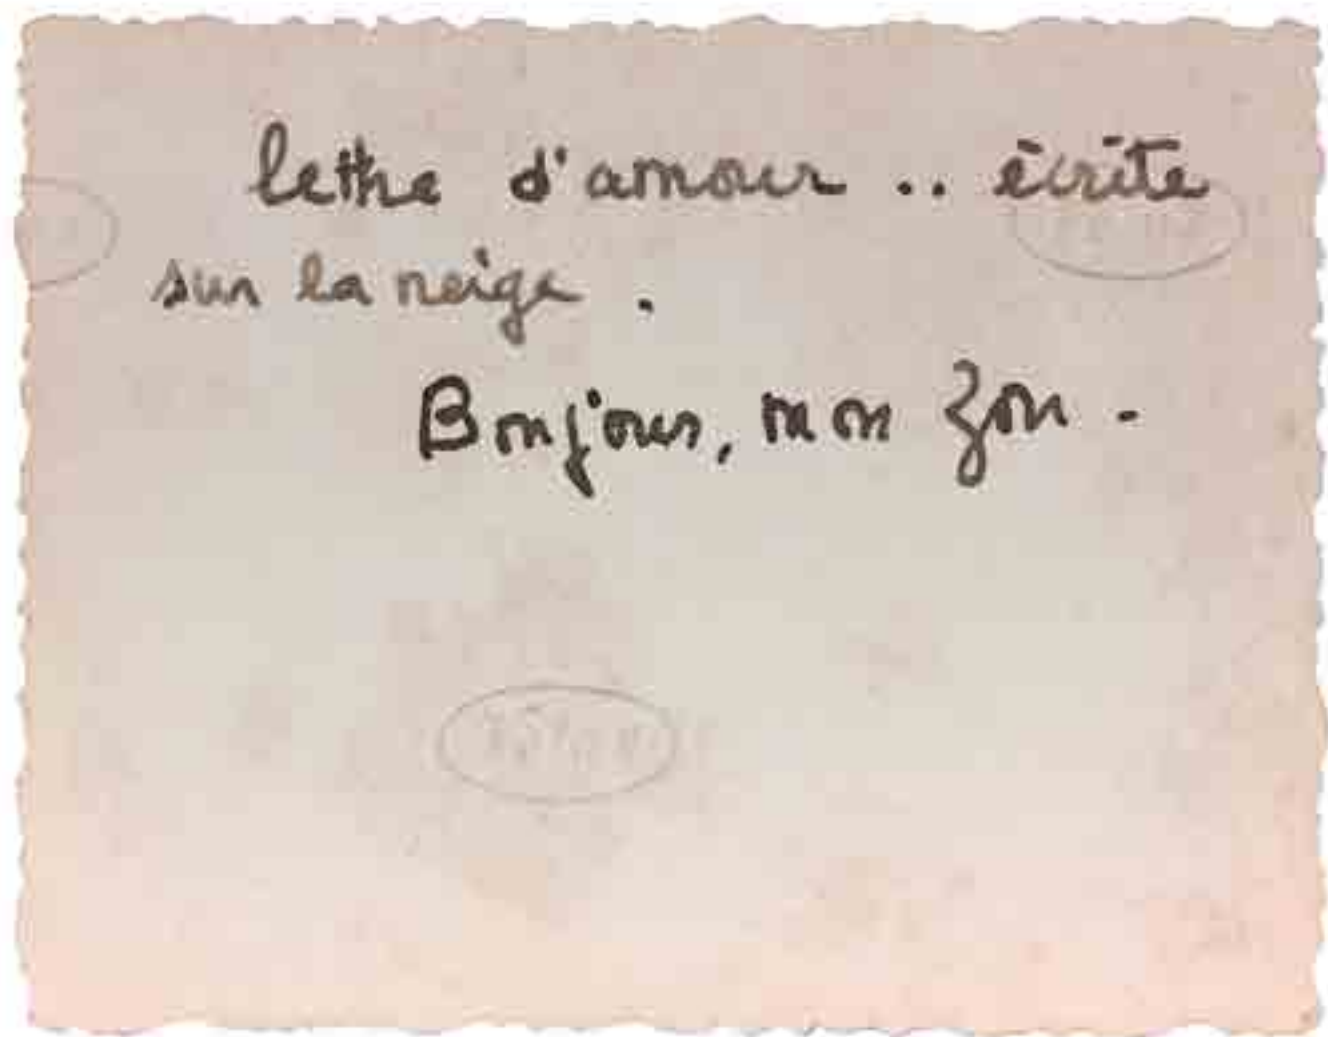 lettre d'amour .. écrite
sur la neige .
Bonjour, mon Zou -